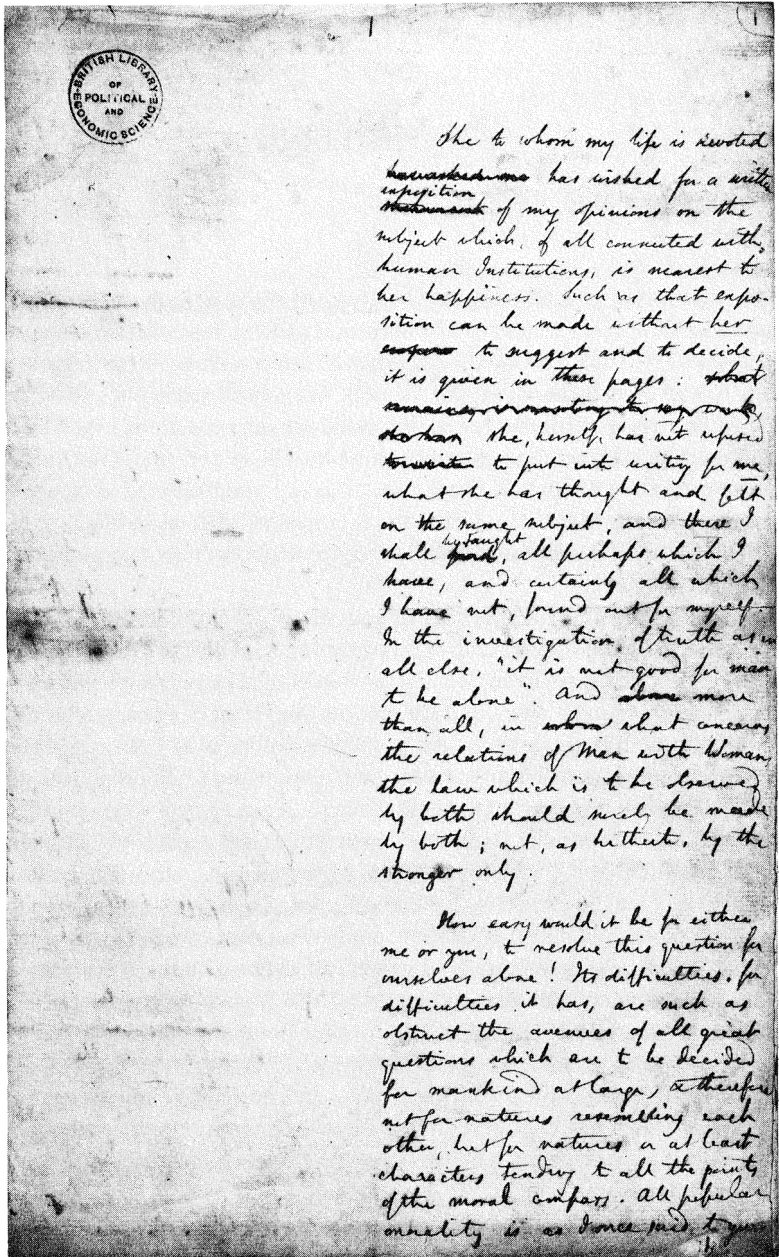 1
1
BRITISH LIBRARY
OF
POLITICAL
AND
ECONOMIC SCIENCE
She to whom my life is devoted
has wished for a written
exposition
of my opinions on the
subject which, of all connected with
human Institutions, is nearest to
her happiness. Such as that expo-
sition can be made without her
to suggest and to decide,
it is given in these pages: what
remains,
she has she, herself, has not refused
to put into writing for me,
what she has thought and felt
on the same subject, and there I
shall be taught, all perhaps which I
have, and certainly all which
I have not, found out for myself.
In the investigation of truth as in
all else, "it is not good for man
to be alone". And more
than all, in what concerns
the relations of Man with Woman,
the law which is to be observed
by both should surely be made
by both; not, as hitherto, by the
stronger only.
How easy would it be for either
me or you, to resolve this question for
ourselves alone! Its difficulties, for
difficulties it has, are such as
obstruct the avenues of all great
questions which are to be decided
for mankind at large, & therefore
not for natures resembling each
other, but for natures or at least
characters tending to all the points
of the moral compass. All popular
morality is as I once said to you